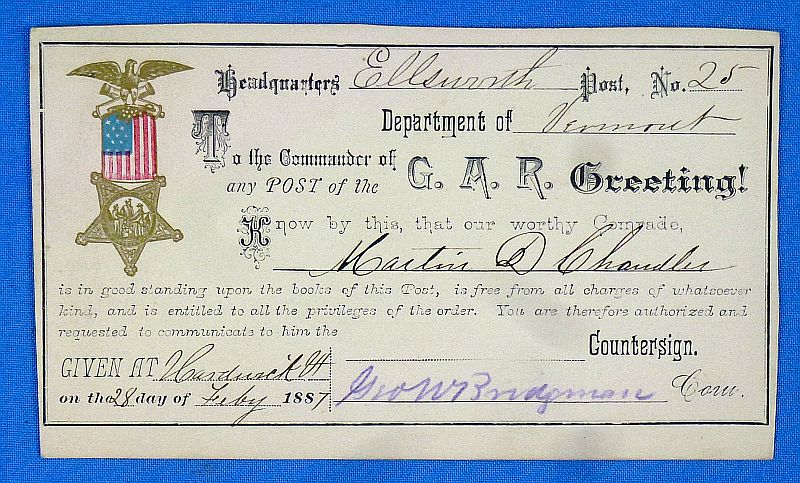 Headquarters Ellsworth Post, No. 25
Department of Vermont
To the Commander of
any POST of the G. A. R. Greeting!
Know by this, that our worthy Comrade,
Martin D Chandler
is in good standing upon the books of this Post, is free from all charges of whatsoever
kind, and is entitled to all the privileges of the order. You are therefore authorized and
requested to communicate to him the
Countersign.
GIVEN AT Hardwick Vt
on the 28 day of Feby 1887
Geo W Bridgman Com.